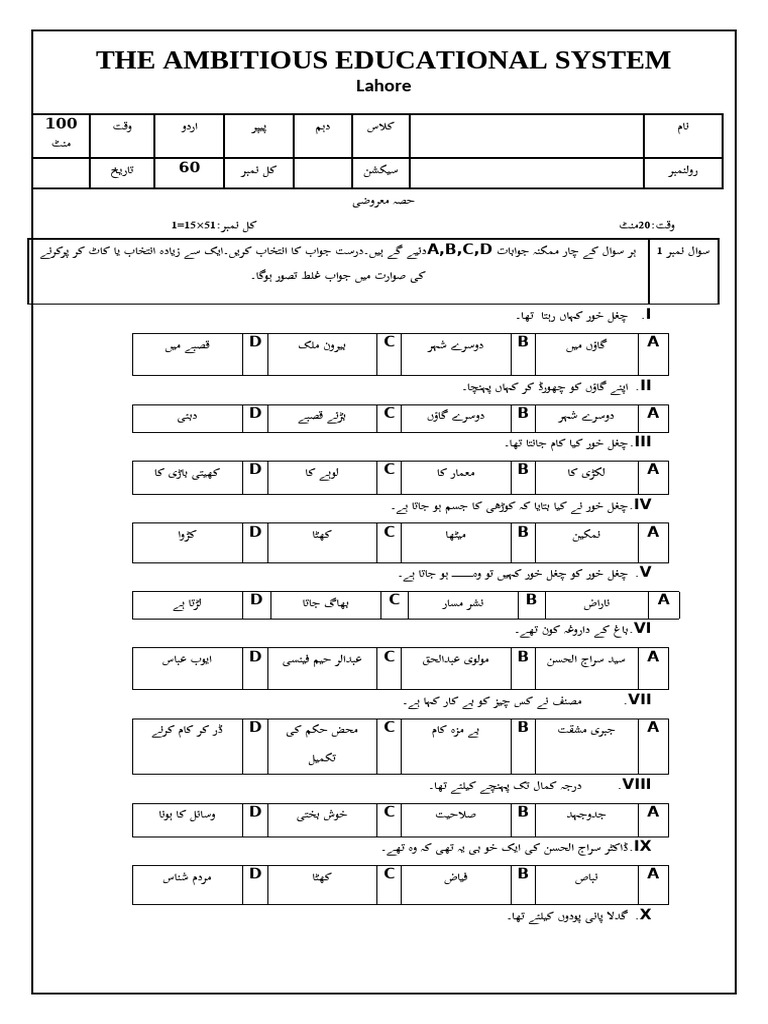 THE AMBITIOUS EDUCATIONAL SYSTEM
Lahore
نام کلاس دہم پیپر اردو وقت 100 منٹ
رولنمبر سیکشن کل نمبر 60 تاریخ
حصہ معروضی
وقت:20منٹ کل نمبر:51×15=1
سوال نمبر 1 ہر سوال کے چار ممکنہ جوابات A,B,C,D دئیے گے ہیں۔درست جواب کا انتخاب کریں۔ایک سے زیادہ انتخاب یا کاٹ کر پرکرنے
کی صوارت میں جواب غلط تصور ہوگا۔
I. چغل خور کہاں رہتا تھا۔
A گاؤں میں B دوسرے شہر C بیرون ملک D قصبے میں
II. اپنے گاؤں کو چھورڈ کر کہاں پہنچا۔
A دوسرے شہر B دوسرے گاؤں C بڑئے قصبے D دبئی
III.چغل خور کیا کام جانتا تھا۔
A لکڑی کا B معمار کا C لوہے کا D کھیتی باڑی کا
IV.چغل خور نے کیا بتایا کہ کوڑھی کا جسم ہو جاتا ہے۔
A نمکین B میٹھا C کھٹا D کڑوا
V. چغل خور کو چغل خور کہیں تو وہ____ ہو جاتا ہے۔
A ناراض B نشر مسار C بھاگ جاتا D لڑتا ہے
VI.باغ کے داروغہ کون تھے۔
A سید سراج الحسن B مولوی عبدالحق C عبدالر حیم فینسی D ایوب عباس
VII. مصنف نے کس چیز کو بے کار کہا ہے۔
A جبری مشقت B بے مزہ کام C محض حکم کی تکمیل D ڈر کر کام کرنے
VIII. درجہ کمال تک پہنچے کیلئے تھا۔
A جدوجہد B صلاحیت C خوش بختی D وسائل کا ہونا
IX.ڈاکٹر سراج الحسن کی ایک خو بی یہ تھی کہ وہ تھے۔
A نباص B فیاض C کھٹا D مردم شناس
X. گدلا پانی پودوں کیلئے تھا۔